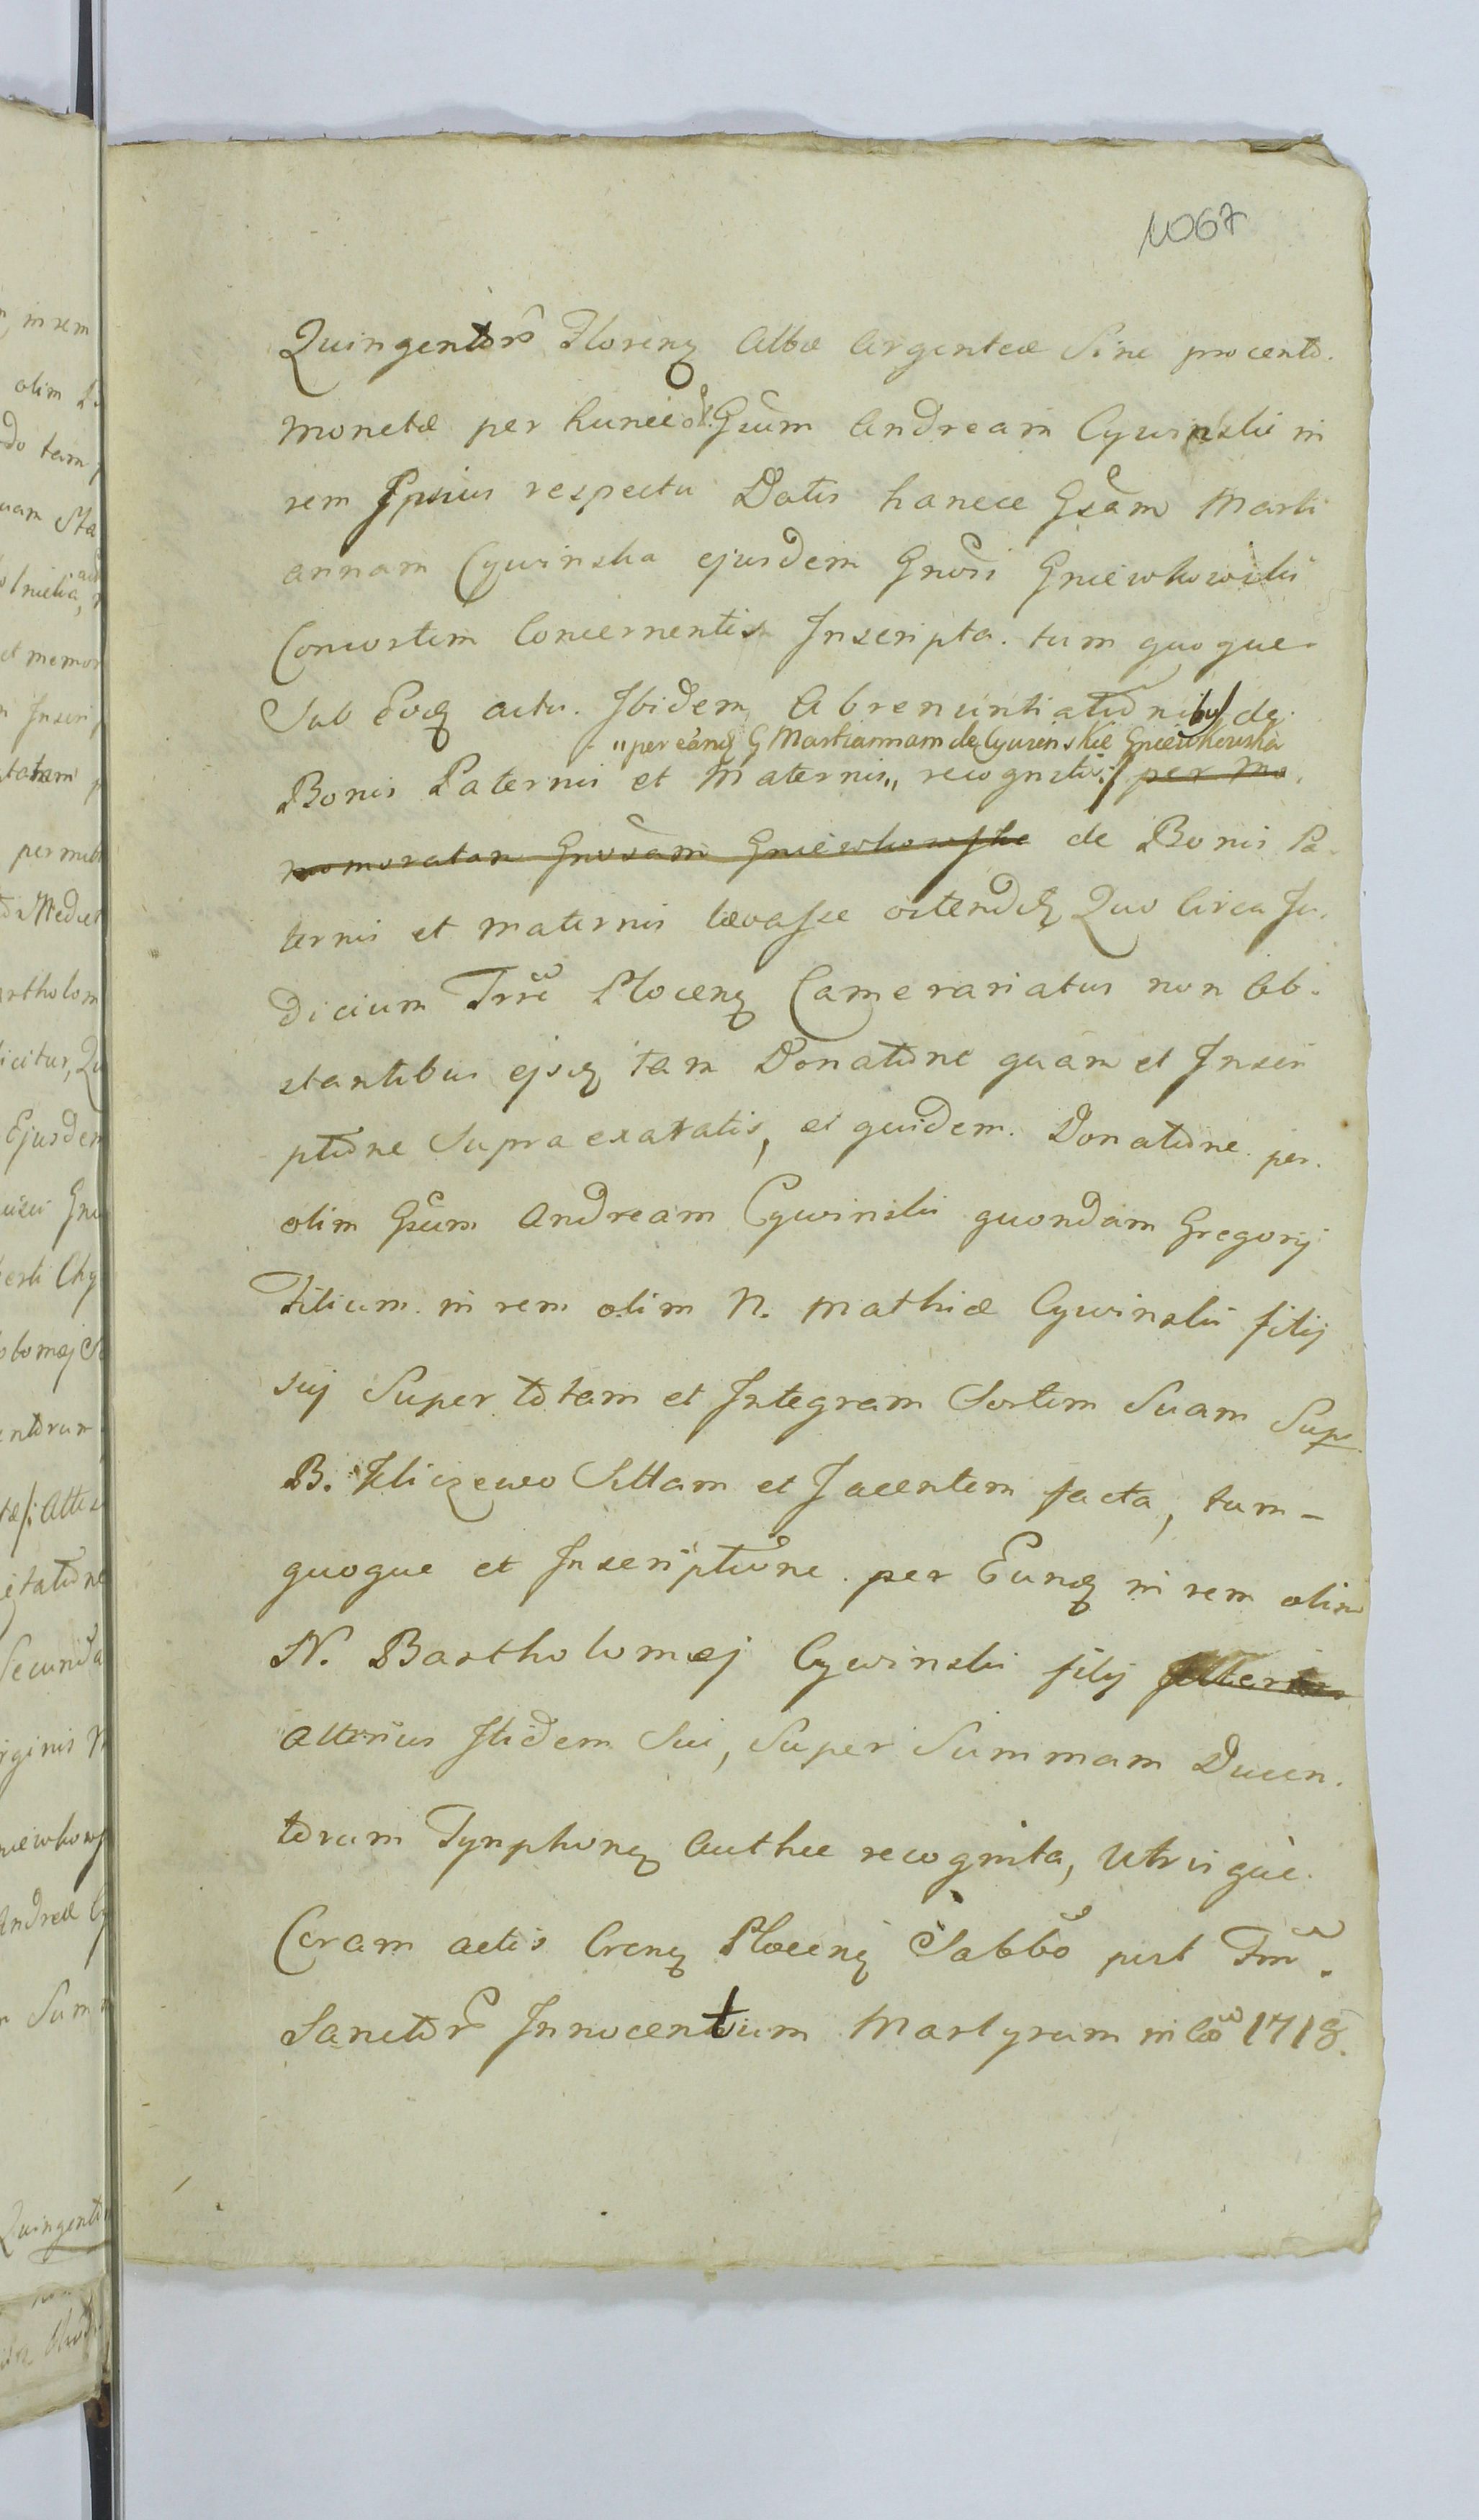 1067
Quingentor̃ Florenꝝ Albæ Argenteæ Sine procento.
Monetæ per huncce ol. Gsum Andream Cywinski in
rem Ipsius respectu Dotis hancce Gsam Marti
annam Cywinska ejusdem Gnosi Gniewkowski
Consortem Concernentis Inscripta. tum quoque
Sub Eodꝫ actu. Ibidem Abrenuntiationibus de
"per eandꝫ G Martiannam de Cywinskie Gniewkowska
Bonis Paternis et Maternis,, recognitis: per me
memoratam Gnosam Gniewkowske de Bonis Pa
ternis et maternis levasse ostendꝫ Quo Circa Ju.
dicium Trre Plocenꝫ Camerariatus non Ob.
stantibus ejsdꝫ tam Donatione quam et Inscri
ptione Supra exaratis, et quidem. Donatione per.
olim Gsum Andream Cywinski quondam Gregorij
Filium in rem olim N. Mathiæ Cywinski filij
suj Super totam et Integram Sortem Suam Supr
B. Feliczewo Sittam et Jacentem facta, tum-
quoque et Inscriptione per Eundꝫ in rem olim
N. Bartholomæj Cywinski filij Alterius
Alterius Itidem Sui, Super Summam Ducen.
torum Tynphonꝫ Authee recognita, Utrisque
Coram actis Crenꝫ Plocenꝫ Sabbo post Fm.
Sanctor̃ Innocentium Martyrum in Ao 1718.